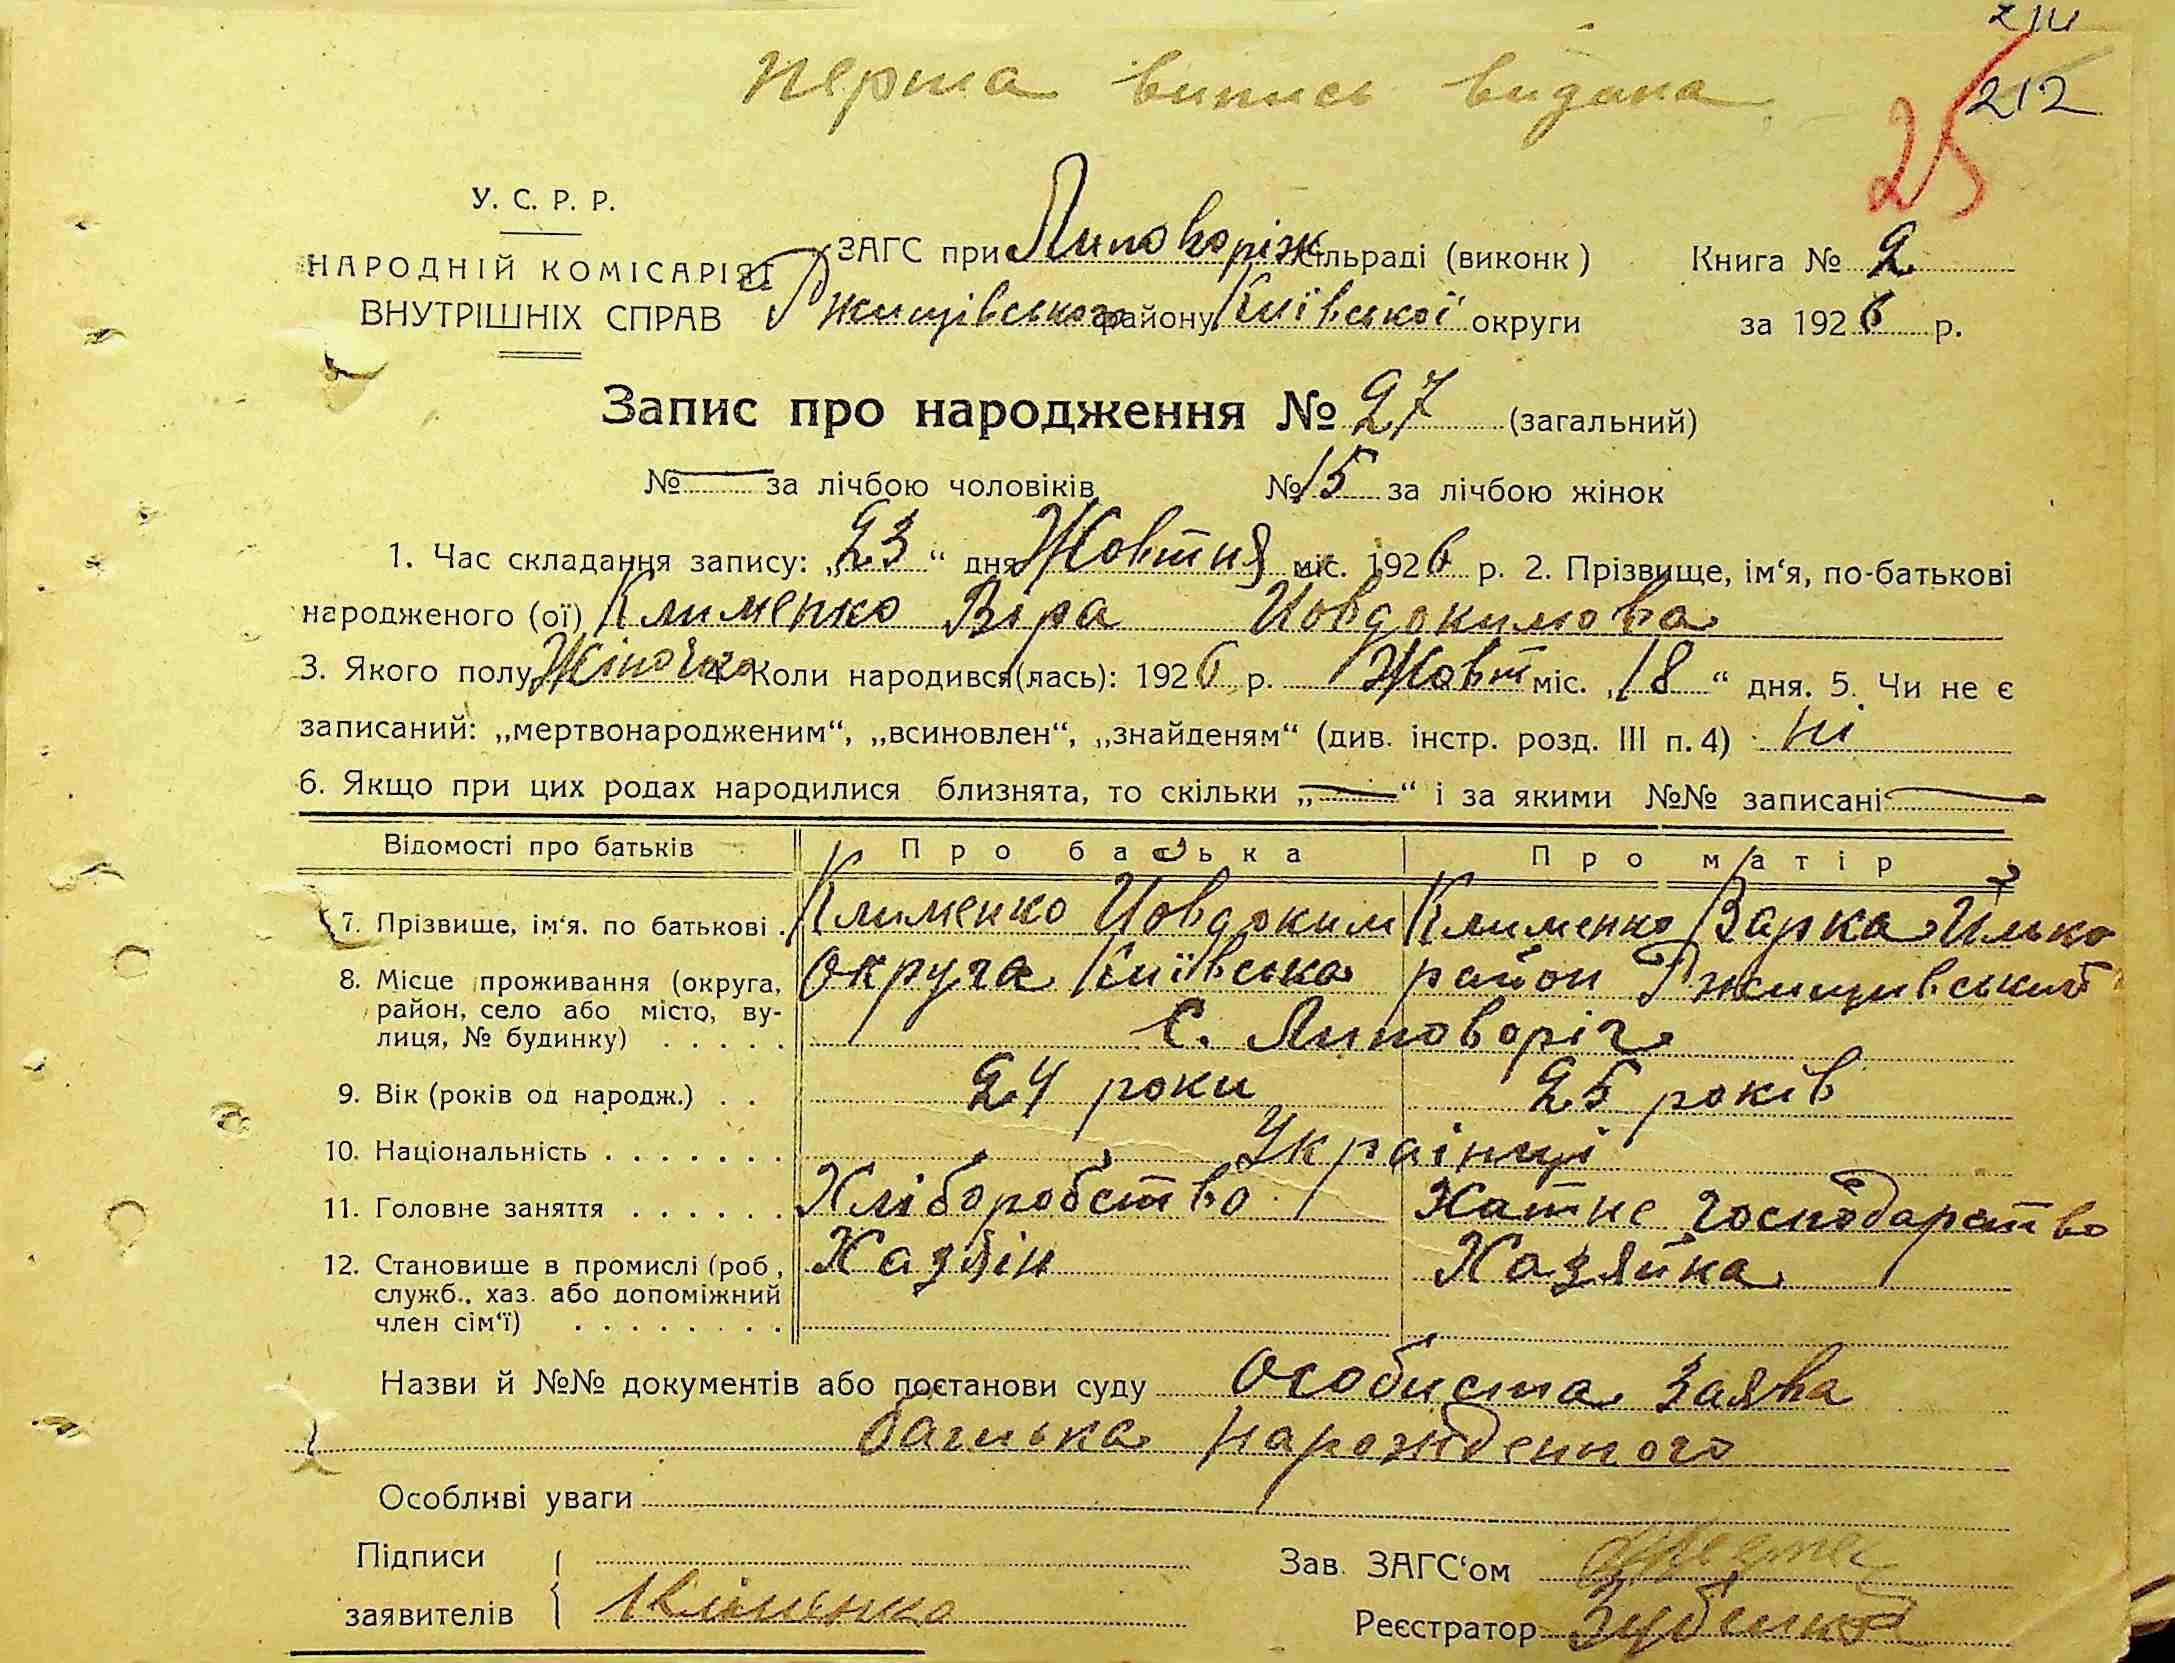 212
Перша випись видана
25
У. С. Р. Р.
НАРОДНІЙ КОМІСАРІЯТ
ВНУТРІШНІХ СПРАВ
ЗАГС при Липоворіж сільраді (виконк)
Ржищівського району Київської округи
Книга № 2
за 1926 р.
Запис про народження № 27 (загальний)
№ — за лічбою чоловіків № 15 за лічбою жінок
1. Час складання запису: „23“ дня Жовтня міс. 1926 р. 2. Прізвище, ім‘я, по-батькові
народженого (ої) Клименко Віра Иовдокимова
3. Якого полу Жіночко 4 Коли народився(лась): 1926 р. Жовт міс. „18“ дня. 5. Чи не є
записаний: „мертвонародженим“, „всиновлен“, „знайденям“ (див. інстр. розд. III п. 4) ні
6. Якщо при цих родах народилися близнята, то скільки „—“ і за якими №№ записані —
Відомості про батьків Про батька Про матір
7. Прізвище, ім‘я, по батькові . Клименко Иовдоким Клименко Варка Илько
8. Місце проживання (округа, Округа Київська район Ржищивський
район, село або місто, ву-
лиця, № будинку) . . . . . С. Липоворіг
9. Вік (років од народж.) . . 24 роки 25 років
10. Національність . . . . . . . Українці
11. Головне заняття . . . . . . Хліборобство Хатне господарство
12. Становище в промислі (роб, Хазяін Хазяйка
служб., хаз. або допоміжний
член сім‘ї) . . . . . . . .
Назви й №№ документів або постанови суду Особиста заява
батька народженного
Особливі уваги
Підписи
заявителів Кліменко
Зав. ЗАГС‘ом
Реєстратор Зубенко